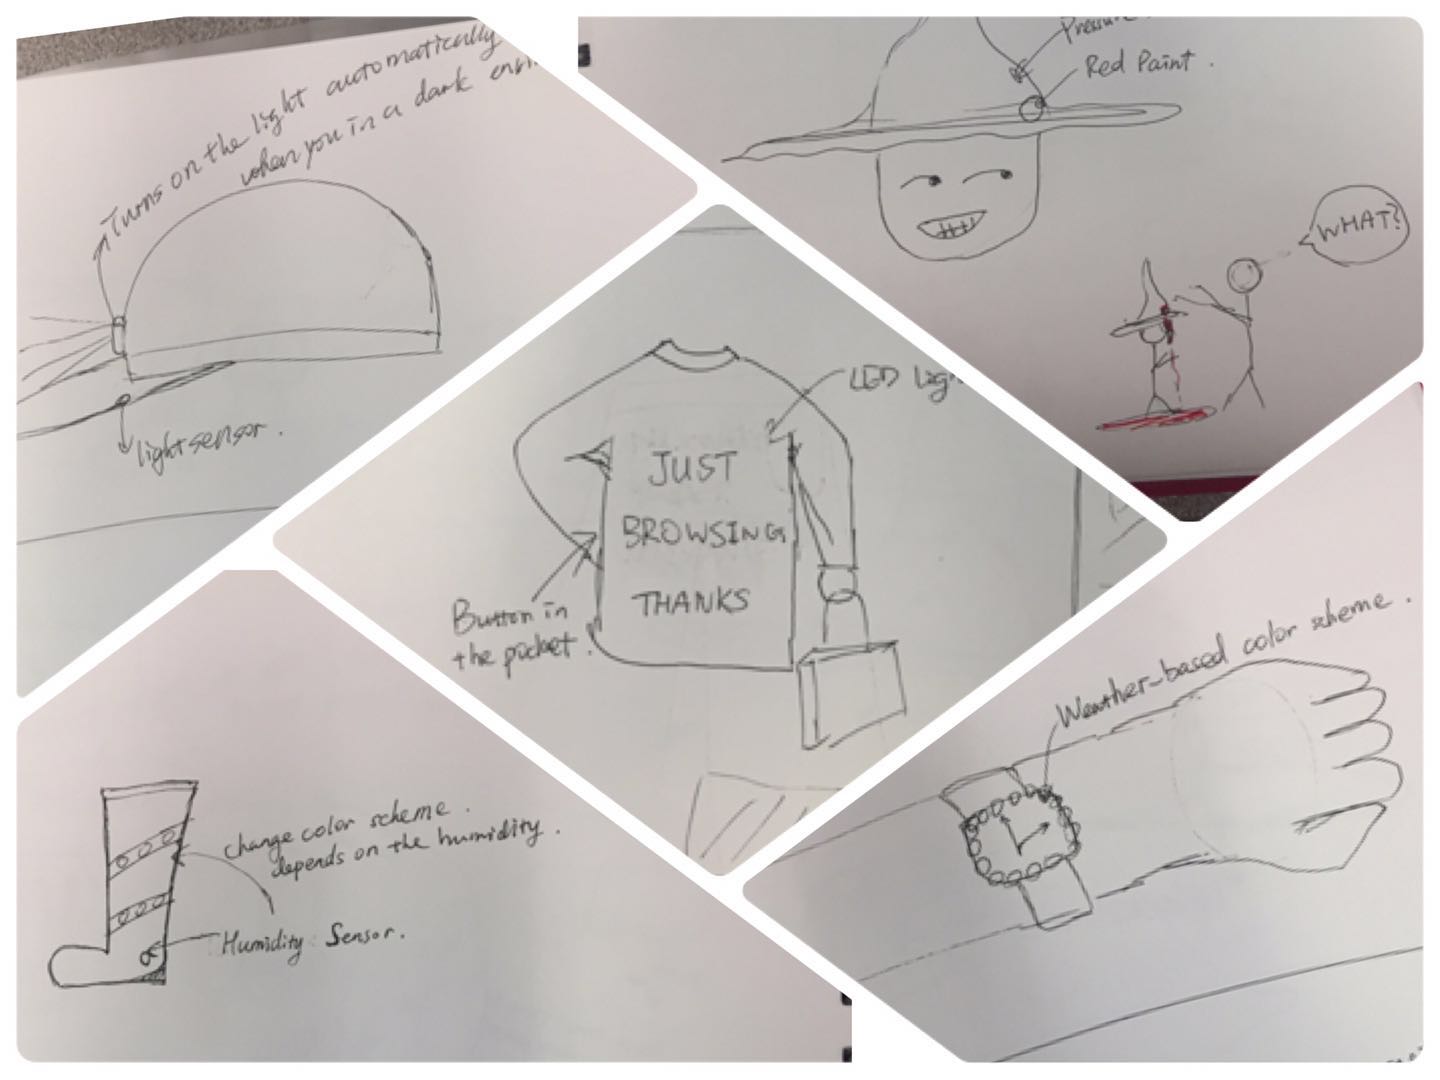 Turns on the light automatically
when you in a dark
light sensor.
Red Paint.
WHAT?
LED
JUST
BROWSING
THANKS
Button in
the pocket.
change color scheme.
depends on the humidity.
Humidity Sensor.
Weather-based color scheme.